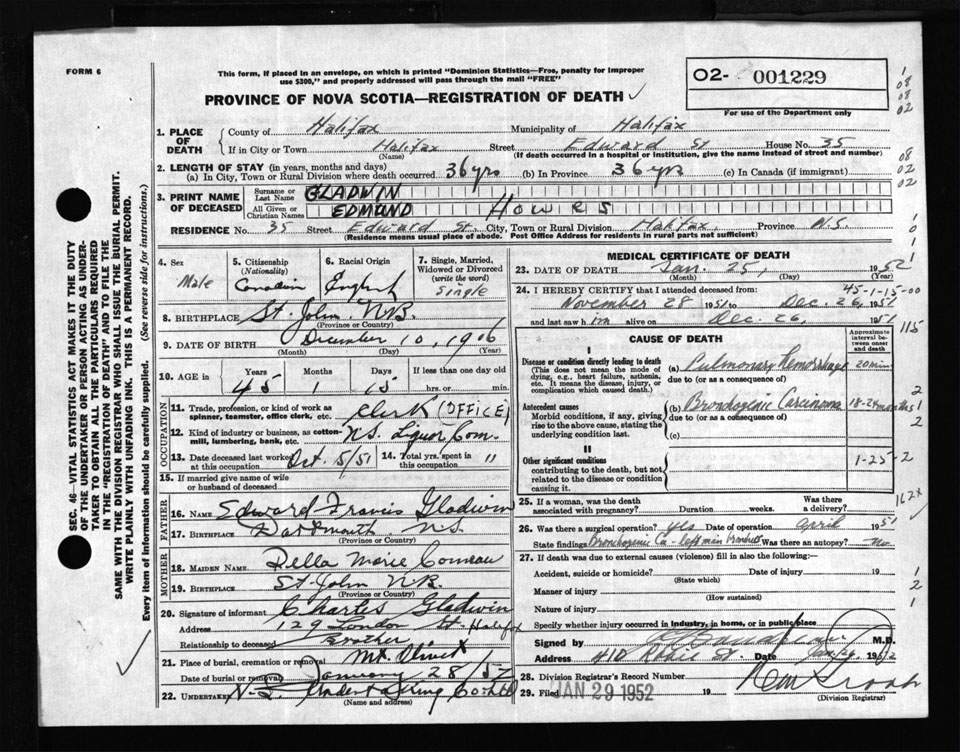 FORM 6
This form, if placed in an envelope, on which is printed "Dominion Statistics—Free, penalty for improper
use $300," and properly addressed will pass through the mail "FREE"
O2- 001229
For use of the Department only
PROVINCE OF NOVA SCOTIA—REGISTRATION OF DEATH
1. PLACE OF DEATH
County of Halifax Municipality of Halifax
If in City or Town Halifax Street Edward St House No. 35
(Name) (If death occurred in a hospital or institution, give the name instead of street and number)
2. LENGTH OF STAY (in years, months and days)
(a) In City, Town or Rural Division where death occurred 36 yrs (b) In Province 36 yrs (c) In Canada (if immigrant)
3. PRINT NAME OF DECEASED
Surname or Last Name GLADWIN
All Given or Christian Names EDMUND HOWES
RESIDENCE No. 35 Street Edward St. City, Town or Rural Division Halifax, Province N.S.
(Residence means usual place of abode. Post Office Address for residents in rural parts not sufficient)
SEC. 46—VITAL STATISTICS ACT MAKES IT THE DUTY
OF THE UNDERTAKER OR PERSON ACTING AS UNDER-
TAKER TO OBTAIN ALL THE PARTICULARS REQUIRED
IN THE "REGISTRATION OF DEATH" AND TO FILE THE
SAME WITH THE DIVISION REGISTRAR WHO SHALL ISSUE THE BURIAL PERMIT.
WRITE PLAINLY WITH UNFADING INK. THIS IS A PERMANENT RECORD.
Every item of information should be carefully supplied. (See reverse side for instructions.)
4. Sex Male
5. Citizenship (Nationality) Canadian
6. Racial Origin English
7. Single, Married, Widowed or Divorced (write the word) Single
8. BIRTHPLACE St. John N.B.
(Province or Country)
9. DATE OF BIRTH December 10, 1906
(Month) (Day) (Year)
10. AGE in Years 45 Months 1 Days 15 If less than one day hrs. or min.
OCCUPATION
11. Trade, profession, or kind of work as spinner, teamster, office clerk, etc. Clerk (OFFICE)
12. Kind of industry or business, as cotton-mill, lumbering, bank, etc. N.S. Liquor Com.
13. Date deceased last worked at this occupation Oct. 5/51 14. Total yrs. spent in this occupation 11
15. If married give name of wife or husband of deceased
FATHER
16. NAME Edward Francis Gladwin
17. BIRTHPLACE Dartmouth N.S.
(Province or Country)
MOTHER
18. MAIDEN NAME Della Marie Comeau
19. BIRTHPLACE St. John N.B.
(Province or Country)
20. Signature of informant Charles Gladwin
Address 129 London St. Halifax
Relationship to deceased Brother
21. Place of burial, cremation or removal Mt. Olivet
Date of burial or removal January 28/52
22. UNDERTAKER N.S. Undertaking Co. Ltd
(Name and address)
MEDICAL CERTIFICATE OF DEATH
23. DATE OF DEATH Jan. 25, 1952
(Month) (Day) (Year)
45-1-15-00
24. I HEREBY CERTIFY that I attended deceased from:
November 28 1951 to Dec. 26, 1951
and last saw him alive on Dec. 26, 1951
CAUSE OF DEATH
Approximate interval between onset and death
I
Disease or condition directly leading to death
(This does not mean the mode of dying, e.g., heart failure, asthenia, etc. It means the disease, injury, or complication which caused death.)
(a) Pulmonary Hemorrhage 20 min
due to (or as a consequence of)
Antecedent causes
Morbid conditions, if any, giving rise to the above cause, stating the underlying condition last.
(b) Bronchogenic Carcinoma 18-24 months
due to (or as a consequence of)
(c)
II
Other significant conditions
contributing to the death, but not related to the disease or condition causing it.
1-25-2
25. If a woman, was the death associated with pregnancy? Duration weeks. Was there a delivery?
26. Was there a surgical operation? yes Date of operation April 1951
State findings Bronchogenic Ca - left main bronchus Was there an autopsy? No
27. If death was due to external causes (violence) fill in also the following:
Accident, suicide or homicide? Date of injury 19
(State which)
Manner of injury
(How sustained)
Nature of injury
Specify whether injury occurred in industry, in home, or in public place
Signed by M.D.
Address 410 Robie St. Date
28. Division Registrar's Record Number
29. Filed JAN 29 1952 19
(Division Registrar)